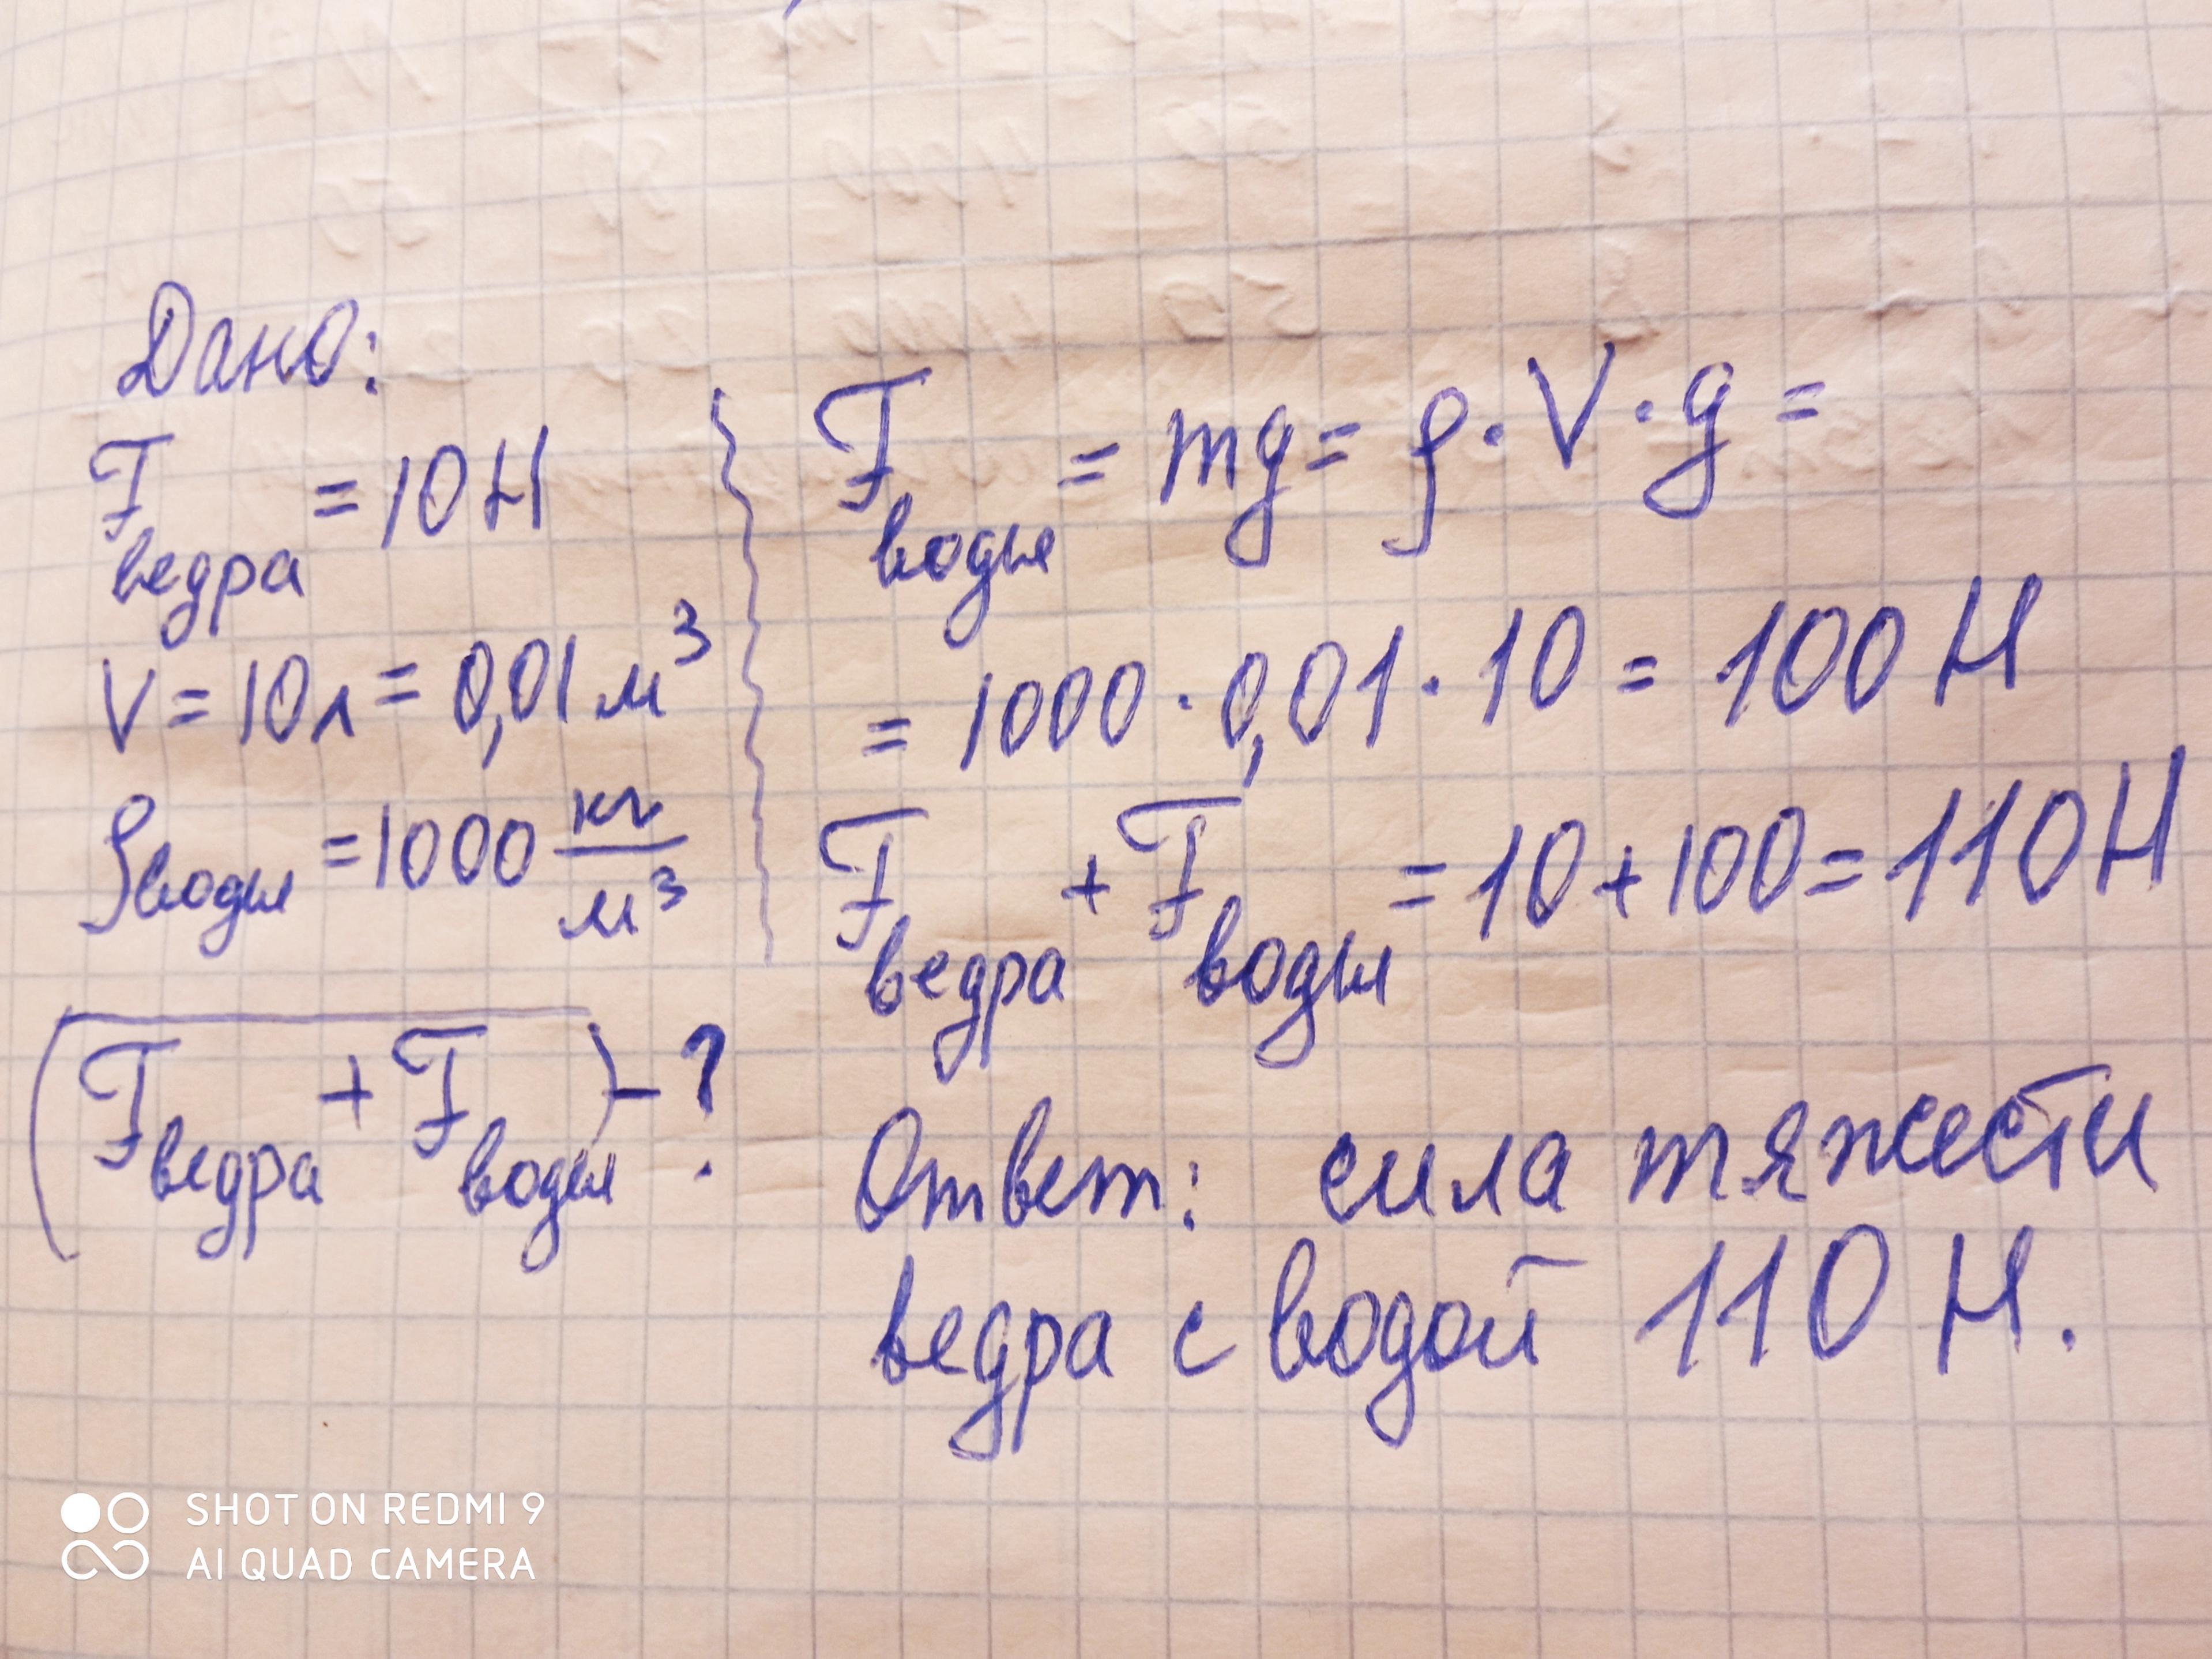 Дано:
F ведра = 10 Н
V = 10 л = 0,01 м³
ρ воды = 1000 кг/м³
(F ведра + F воды) - ?
F воды = mg = ρ · V · g =
= 1000 · 0,01 · 10 = 100 Н
F ведра + F воды = 10 + 100 = 110 Н
Ответ: сила тяжести
ведра с водой 110 Н.
SHOT ON REDMI 9
AI QUAD CAMERA